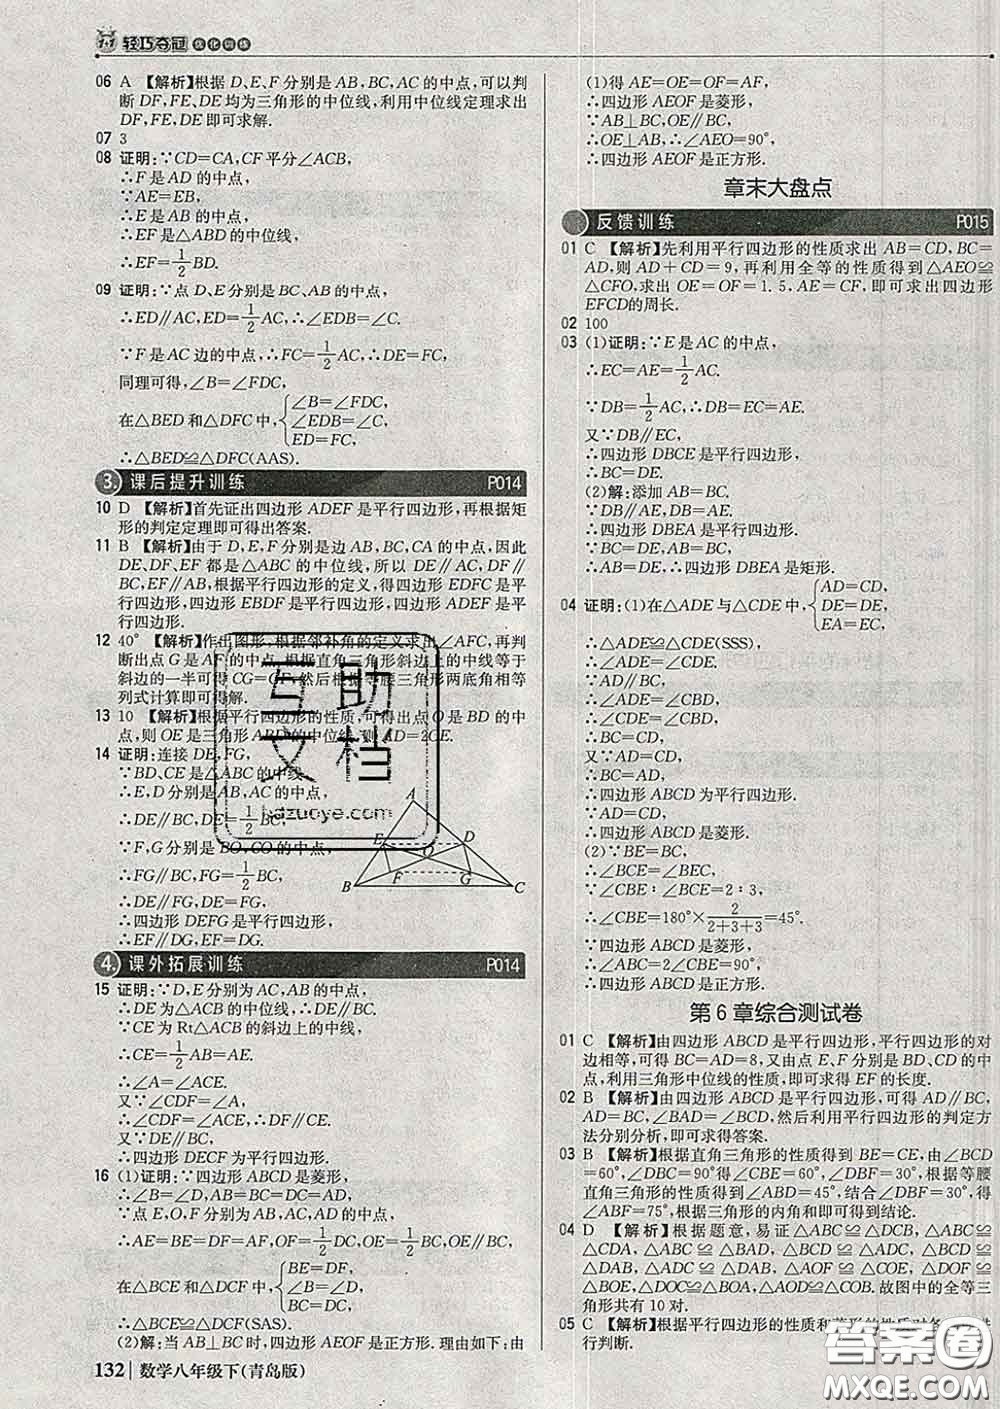 1+1 轻巧夺冠 优化训练
06 A 【解析】根据 D、E、F 分别是 AB,BC,AC 的中点,可以判
断 DF,FE,DE 均为三角形的中位线,利用中位线定理求出
DF,FE,DE 即可求解.
07 3
08 证明:∵CD=CA,CF 平分∠ACB,
∴F 是 AD 的中点,
∵AE=EB,
∴E 是 AB 的中点,
∴EF 是△ABD 的中位线,
∴EF=1/2 BD.
09 证明:∵点 D、E 分别是 BC、AB 的中点,
∴ED∥AC,ED=1/2 AC,∴∠EDB=∠C.
∵F 是 AC 边的中点,∴FC=1/2 AC,∴DE=FC.
同理可得,∠B=∠FDC,
在△BED 和△DFC 中,{∠B=∠FDC,
∠EDB=∠C,
ED=FC,
∴△BED≌△DFC(AAS).
3. 课后提升训练 P014
10 D 【解析】首先证出四边形 ADEF 是平行四边形,再根据矩
形的判定定理即可得出答案.
11 B 【解析】由于 D、E、F 分别是边 AB,BC,CA 的中点,因此
DE、DF、EF 都是△ABC 的中位线,所以 DE∥AC,DF∥
BC,EF∥AB,根据平行四边形的定义,得四边形 EDFC 是平
行四边形,四边形 EBDF 是平行四边形,四边形 ADEF 是平
行四边形.
12 40° 【解析】作出图形,根据邻补角的定义求出∠AFC,再判
断出点 G 是 AF 的中点,根据直角三角形斜边上的中线等于
斜边的一半可得 CG=GF,然后根据等腰三角形两底角相等
列式计算即可得解.
13 10 【解析】根据平行四边形的性质,可得出点 O 是 BD 的中
点,则 OE 是三角形 ABD 的中位线,则 AD=2OE.
14 证明:连接 DE,FG,
∵BD、CE 是△ABC 的中线,
∴E,D 分别是 AB,AC 的中点,
∴DE∥BC,DE=1/2 BC,
∵F,G 分别是 BO,CO 的中点,
∴FG∥BC,FG=1/2 BC,
∴DE∥FG,DE=FG,
∴四边形 DEFG 是平行四边形,
∴EF∥DG,EF=DG.
A
E D
O
F G
B C
4. 课外拓展训练 P014
15 证明:∵D,E 分别为 AC,AB 的中点,
∴DE 为△ACB 的中位线,∴DE∥BC.
∵CE 为 Rt△ACB 的斜边上的中线,
∴CE=1/2 AB=AE,
∴∠A=∠ACE.
又∵∠CDF=∠A,
∴∠CDF=∠ACE,∴DF∥CE.
又∵DE∥BC,
∴四边形 DECF 为平行四边形.
16 (1)证明:∵四边形 ABCD 是菱形,
∴∠B=∠D,AB=BC=DC=AD,
∵点 E,O,F 分别为 AB,AC,AD 的中点,
∴AE=BE=DF=AF,OF=1/2 DC,OE=1/2 BC,OE∥BC,
在△BCE 和△DCF 中,{BE=DF,
∠B=∠D,
BC=DC,
∴△BCE≌△DCF(SAS).
(2)解:当 AB⊥BC 时,四边形 AEOF 是正方形.理由如下:由
132 数学八年级下(青岛版)
(1)得 AE=OE=OF=AF,
∴四边形 AEOF 是菱形,
∵AB⊥BC,OE∥BC,
∴OE⊥AB,∴∠AEO=90°,
∴四边形 AEOF 是正方形.
章末大盘点
反馈训练 P015
01 C 【解析】先利用平行四边形的性质求出 AB=CD,BC=
AD,则 AD+CD=9,再利用全等的性质得到△AEO≌
△CFO,求出 OE=OF=1.5,AE=CF,即可求出四边形
EFCD的周长.
02 100
03 (1)证明:∵E 是 AC 的中点,
∴EC=AE=1/2 AC.
∵DB=1/2 AC,∴DB=EC=AE.
又∵DB∥EC,
∴四边形 DBCE 是平行四边形.
∴BC=DE.
(2)解:添加 AB=BC.
∵DB∥AE,DB=AE,
∴四边形 DBEA 是平行四边形.
∵BC=DE,AB=BC,
∴AB=DE.∴四边形 DBEA 是矩形.
04 证明:(1)在△ADE 与△CDE 中,{AD=CD,
DE=DE,
EA=EC,
∴△ADE≌△CDE(SSS),
∴∠ADE=∠CDE.
∵AD∥BC,
∴∠ADE=∠CBD,
∴∠CDE=∠CBD,
∴BC=CD.
又∵AD=CD,
∴BC=AD,
∴四边形 ABCD 为平行四边形.
∵AD=CD,
∴四边形 ABCD 是菱形.
(2)∵BE=BC,
∴∠BCE=∠BEC,
∵∠CBE∶∠BCE=2∶3,
∴∠CBE=180°×2/(2+3+3)=45°.
∵四边形 ABCD 是菱形,
∴∠ABC=2∠CBE=90°,
∴四边形 ABCD 是正方形.
第 6 章综合测试卷
01 C 【解析】由四边形 ABCD 是平行四边形,平行四边形的对
边相等,可得 BC=AD=8,又由点 E、F 分别是 BD、CD 的中
点,利用三角形中位线的性质,即可求得 EF 的长度.
02 B 【解析】由四边形 ABCD 是平行四边形,可得 AD∥BC,
AD=BC,∠BAD=∠BCD,然后利用平行四边形的判定方
法分别分析,即可求得答案.
03 B 【解析】根据直角三角形的性质得到 BE=CE,由∠BCD
=60°,∠DBC=90°得∠CBE=60°,∠DBF=30°,根据等腰
直角三角形的性质得到∠ABD=45°,结合∠DBF=30°,得
∠ABF=75°,根据三角形的内角和即可得到结论.
04 D 【解析】根据题意,易证△ABC≌△DCB,△ABC≌
△CDA,△ABC≌△BAD,△BCD≌△ADC,△BCD≌
△DAB,△ADC≌△DAB,△AOF≌△COE,△DOF≌
△BOE,△DOC≌△BOA,△AOD≌△COB.故图中的全等三
角形共有 10 对.
05 C 【解析】根据平行四边形的性质和菱形的性质对各
行判断.
互助
文档
hdzuoye.com
答案圈
MXQE.COM